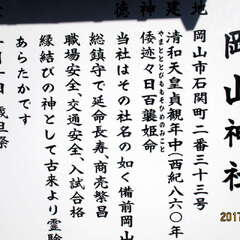 岡山神社
地 岡山市石関町二番三十三号
建 清和天皇貞観年中(西紀八六〇年
神 倭迹々日百襲姫命
やまとととびももそひめのみこと
徳 当社はその社名の如く備前岡山
総鎮守で延命長寿、商売繁昌
職場安全、交通安全、入試合格
縁結びの神として古来より霊験
あらたかです
十月一日 歳旦祭
2017